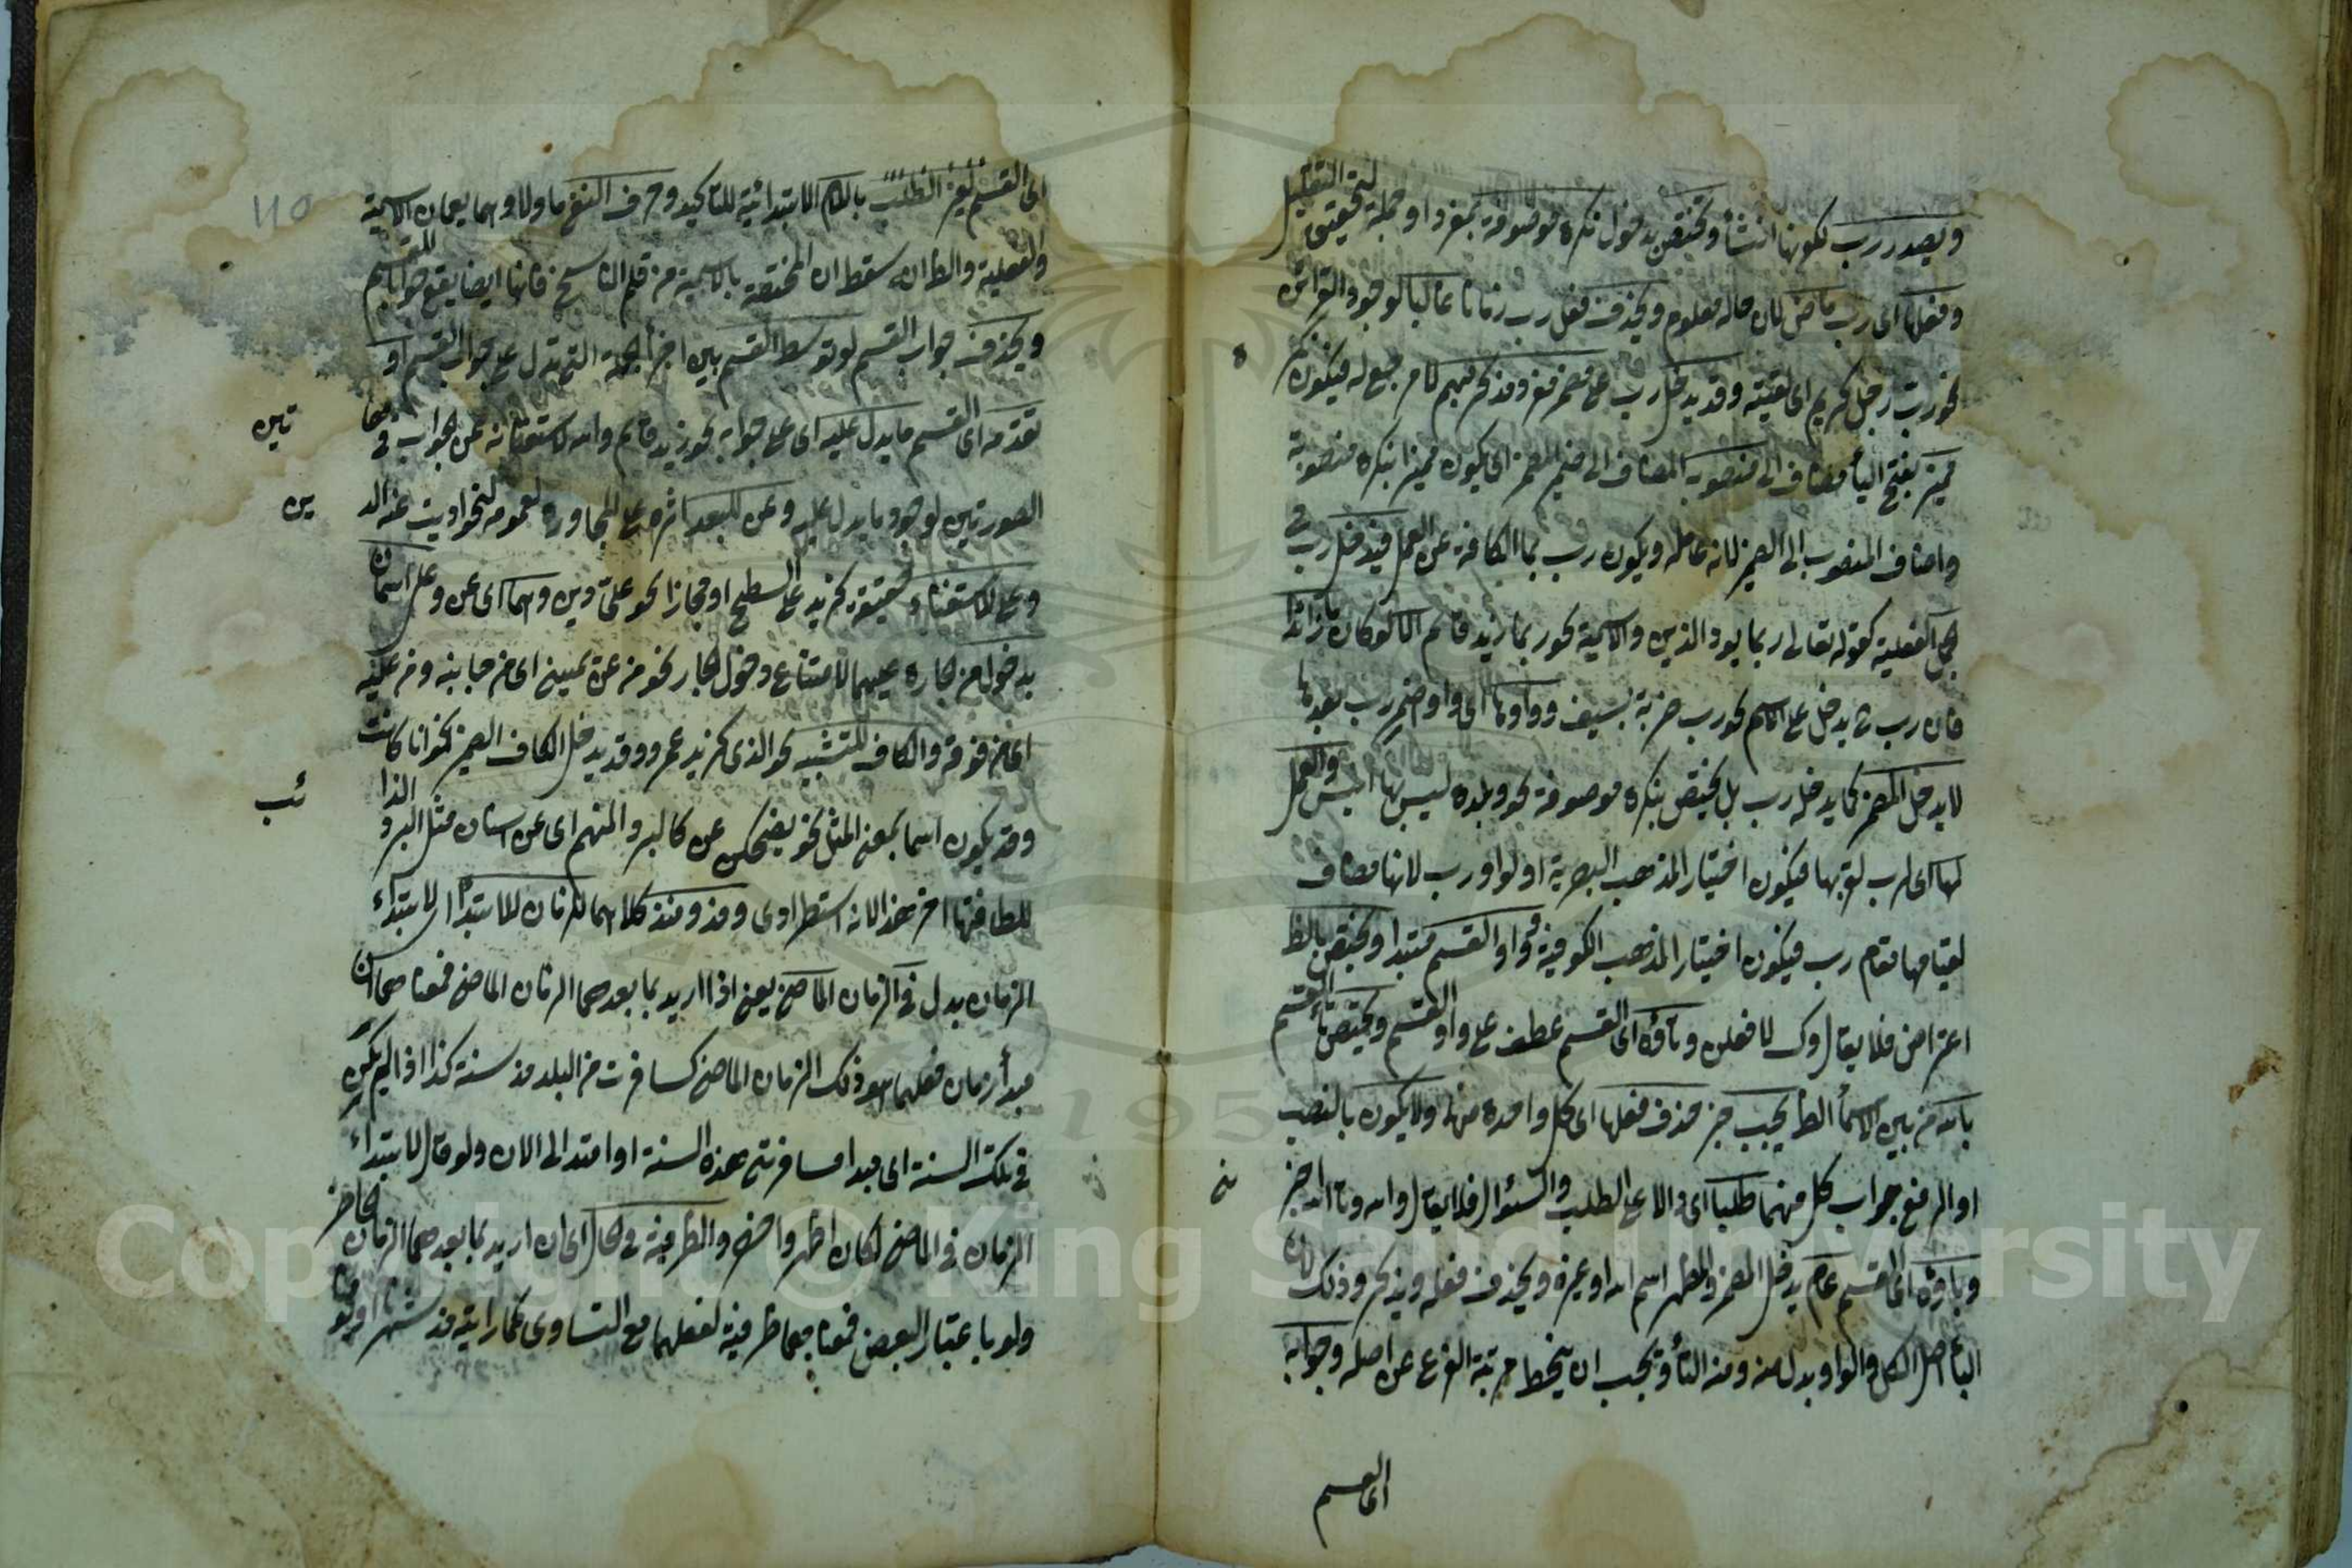 ويصدر رب لكونها انشأ وتختص بدخول نكرة موصوفة بمفرد او جملة لتحقيق التقليل
وفعلها اى رب ماض لان حاله معلوم ويحذف فعل رب زمانا غالبا لوجود القرائن
نحو رب رجل كريم اى لقيته وقد يدخل رب على مضمر مفرد مذكر مبهم لا مرجع له فيكون
مميز بفتح الياء مضاف الى منصوبه المضاف الى ضمير المضمر اى يكون مميزا بنكرة منصوبة
واضاف المنصوب الى الضمير لانه عامله ويكون رب بما الكافة عن العمل فيدخل رب في
الجمل الفعلية كقوله تعالى ربما يود الذين والاسمية نحو ربما زيد قائم اما لو كان ما زائدا
فان رب يدخل على الاسم نحو رب ضربة بسيف وواوها اى واو اضمر رب بعدها
لا يدخل المضمر كما يدخله رب بل يختص بنكرة موصوفة نحو وبلدة ليس بها انيس والعمل
لها اى لرب لقربها فيكون اختيار المذهب البصرية او لواو رب لانها مضاف
لقيامها مقام رب فيكون اختيار المذهب الكوفية وواو القسم مبتدا ويختص بالظ
اعتراض فلا يقال وك لافعلن وتاؤه اى القسم عطف على واو القسم ويختص تاء القسم
بالله من بين الاسمأ الظ يجب خبر حذف فعلها اى كل واحدة منها ولا يكون بالنصب
او الرفع جواب كل منهما طلبا اى دالا على الطلب والسؤال فلا يقال والله وتالله اخبر
وباؤه اى القسم عام يدخل المضمر والمظهر اسم الله او غيره ويحذف فعله ويذكر وذلك لان
الباء اصل الكل والواو بدل منه ومنه التأ ويجب ان ينحط مرتبة الفرع عن اصله وجوابه
اى القسم
اى القسم لغير الطلب باللام الابتدائية للتاكيد وحرف النفي ما ولا وهما يعمان الاسمية
والفعلية والظ انه سقط ان المختصة بالاسمية من قلم الناسخ فانها ايضا يقع جوابا للقسم
ويحذف جواب القسم لو توسط القسم بين اجزأ الجملة التى تدل على جواب القسم او
تقدمه اى القسم ما يدل عليه اى على جوابه نحو زيد قائم والله لاستغنائه عن الجواب في
الصورتين لوجود ما يدل عليه وعن للبعد اثره على للمجاوزة لعمومه نحو اديت عنه الد
وعلى للاستعلاء حقيقة كزيد على السطح او مجازا نحو على دين وهما اى عن وعلى اسمان
بدخول من الجارة عليهما لامتناع دخول الجار نحو من عن يمينى اى من جانبه ومن عليه
اى من فوقه والكاف للتشبيه نحو الذى كزيد عمرو وقد يدخل الكاف الضمير نحو انا كانت
وقد يكون اسما بمعنى المثل نحو يضحكن عن كالبرد المنهم اى عن اسنان مثل البرد الذا
للطافتها اخر هذا لانه استطرادى ومذ ومنذ كلاهما للزمان للابتدأ الابتداء
الزمان بدل في الزمان الماضى يعنى اذا اريد بما بعدهما الزمان الماضى فمعناهما ان
مبدأ زمان فعلهما هو ذلك الزمان الماضى كسافرت من البلد مذ سنة كذا اذا لم يكن
في تلك السنة اى مبدا مسافرتى هذه السنة او امتد الى الان ولو قال لابتداء
الزمان في الماضى لكان اظهر واخصر والظرفية في الحال اى ان اريد بما بعدهما الزمان الحاضر
ولو باعتبار البعض فمعناهما ظرفية لفعلهما مع التساوى كما رايته مذ شهرنا
تين
ين
ئب